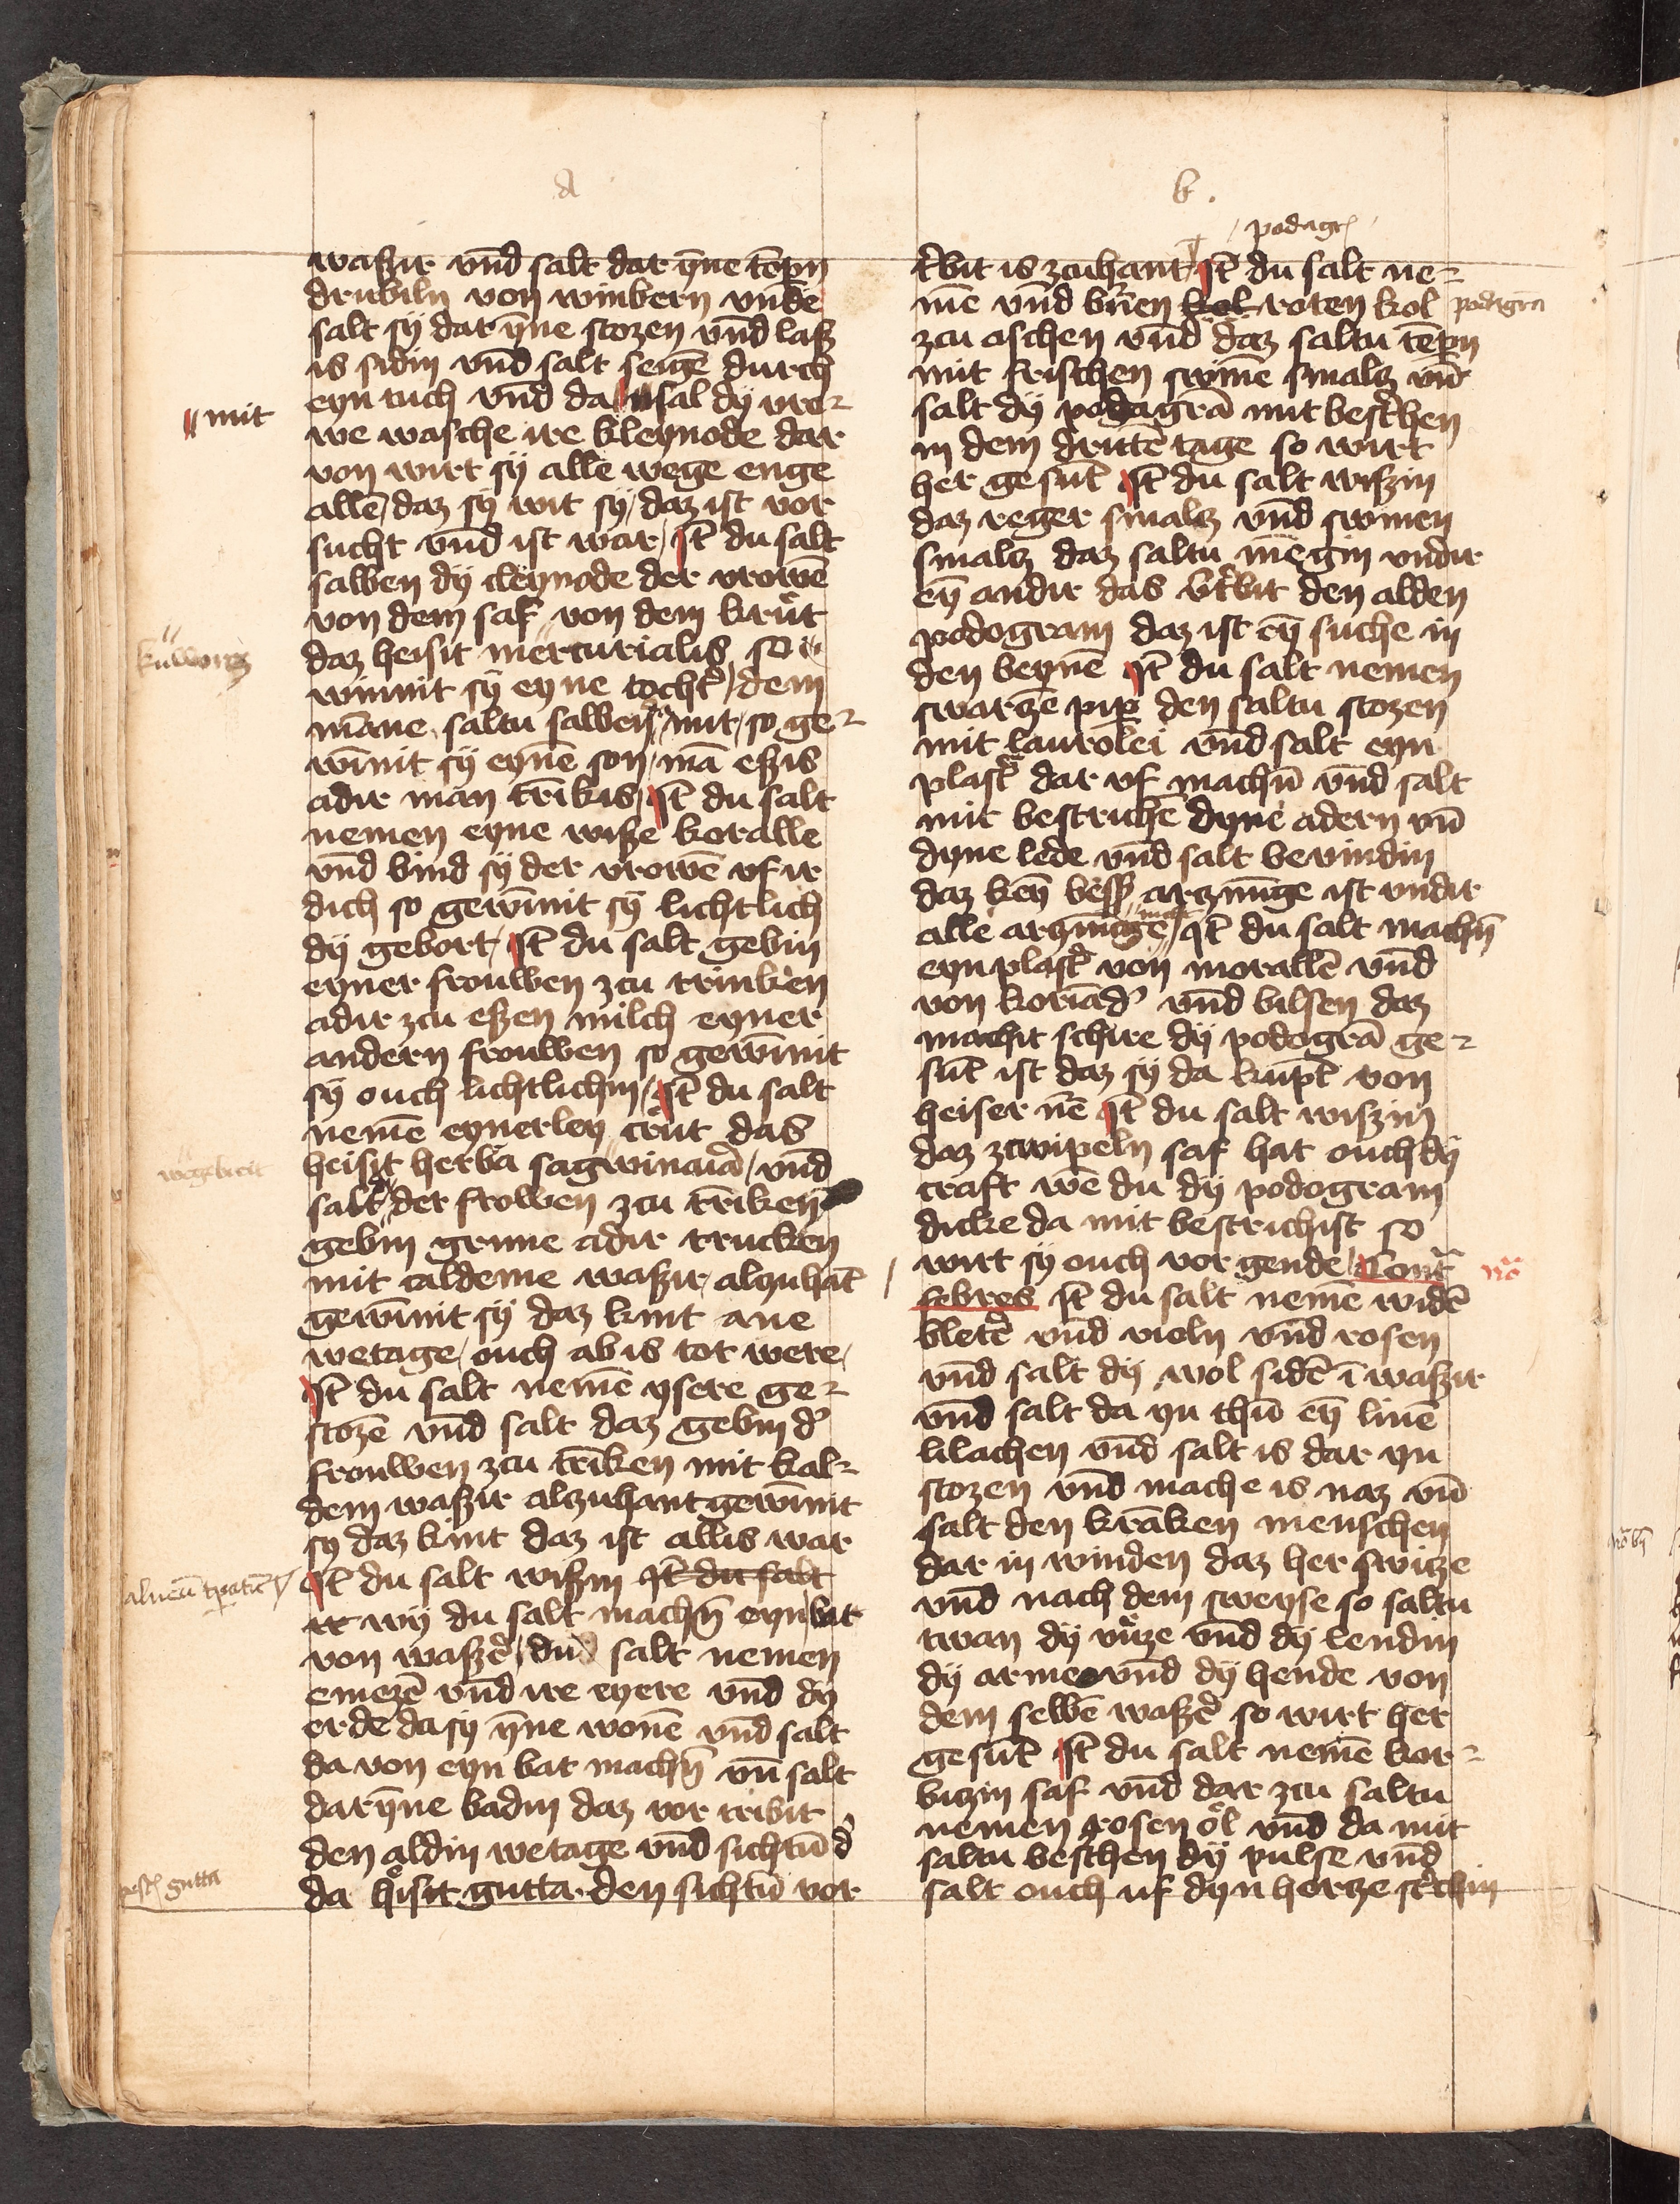 a
waszir vnd salt dar ȳne tēpn
drubiln von winbern vnde
salt sÿ dar ȳne stozen vnd lasz
is sidin vnd salt seigē durch
eyn tuch vnd da sal dÿ vro-
mit
we wasche ire kleynode dar
von wirt sÿ alle wege enge
allē / daz sÿ wit sÿ / daz ist vor
sucht vnd ist war / Jt̄ du salt
salben dÿ cleynode der vrowē
von dem saf von dem krůt
daz heisit mercurialis so
kuwortz
winnit sÿ eyne tocht̉ / dem
māne saltu salben mit / so ge-
wīnit sÿ eynē son / mā eszis
adir man trīkis / Jt̄ du salt
nemen eyne wisze koralle
vnd bind sÿ der vrowē vf ir
dich so gewīnit sÿ lichtlich
dÿ gebort / Jt̄ du salt gebin
eyner frouwen zcu trinken
adir zcu eszen milch eyner
andern frouwen so gewīnit
sÿ ouch lichtlichin / Jt̄ du salt
nemē eynerley crůt das
heisit herba sagwinaria / vnd
wegebreit
salt der frowen zcu trīken
gebin grune adir trucken
mit caldeme waszir alzuhāt
gewīnit sÿ daz kint ane
wetage / ouch ab is tot were /
Jt̄ du salt nemē ysere ge-
stozē vnd salt daz gebin d̉
frouwen zcu trīken mit kal-
dem waszir alzuhant gewīnit
sy daz kint daz ist allis war
Jt̄ du salt wiszin Jt̄ du salt
wÿ du salt machn̄ eyn bat
von waszẻ / du salt nemen
emezē vnd ire eyere vnd dy
erde da sÿ ȳne wonē vnd salt
da von eyn bat machn̄ vn̄ salt
darȳne badin daz vor tribit
den aldin wetage vnd sichtū d̉
da heisit gutta den sichtū vor
gutta
b.
podagr
t̉bit is zcuhant Jt̄ du salt ne-
mē vnd bn̉en kol roten kol
podagra
zcu aschen vnd daz saltu tēpn
mit frischen swinē smalz vn̄
salt dÿ podagrā mit best̉chen
in dem drittē tage so wirt
her gesūt Jt̄ du salt wiszin
daz reger smalz vnd swinen
smalz daz saltu mēgin vndir
eȳ andir das vt̉bit den alden
podogram daz ist eȳ suche in
den beynē Jt̄ du salt nemen
swarzē pip̄ den saltu stozen
mit laurolei vnd salt eyn
plast̉ dar vf machn̄ vnd salt
mit bestrichē dyne adern vn̄
dyne lede vnd salt bevindin
daz keȳ bessẻ arznīge ist vndir
alle arznīge Jt̄ du salt machn̄
eyn plast̉ von morallē vnd
von koriād̉ vnd bilsen daz
machit schire dÿ podogrā ge-
sūt ist daz sÿ da kūpt von
heiser n̄e Jt̄ du salt wiszin
daz zwipeln saf hat ouch dÿ
craft wē du dÿ podogram
dicke da mit bestrichist so
wirt sÿ ouch vor gende / Contᷓ
febres Jt̄ du salt nemē widē
bletẻ vnd violn vnd rosen
vnd salt dÿ wol sidē ī waszir
vnd salt da yn thū eȳ linē
lilachen vnd salt is dar yn
stozen vnd mache is naz vn̄
salt den krāken menschen
dar in winden daz her switze
vnd nach dem sweyse so saltu
twan dÿ vůze vnd dÿ lendin
dÿ arme vnd dÿ hende von
dem selbē waszẻ so wirt her
gesūt Jt̄ du salt nemē kor-
bizin saf vnd dar zcu saltu
nemen rosen ǒl vnd da mit
saltu best̉chen dÿ pulse vnd
salt ouch uf dyn hertze st̉chin